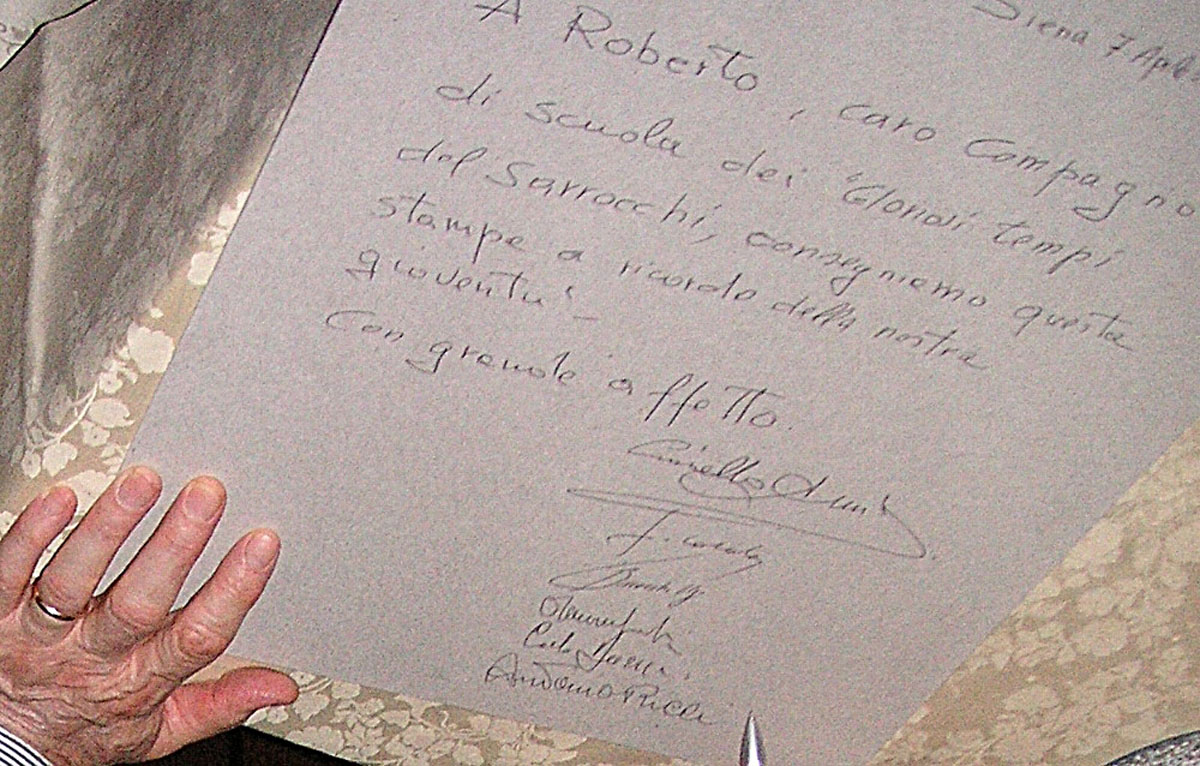 Siena 7 Aprile
A Roberto, caro compagno
di scuola dei "Gloriosi tempi
del Sarrocchi, consegniamo questa
stampe a ricordo della nostra
gioventu'_
Con grande affetto.
Antonio Ricci